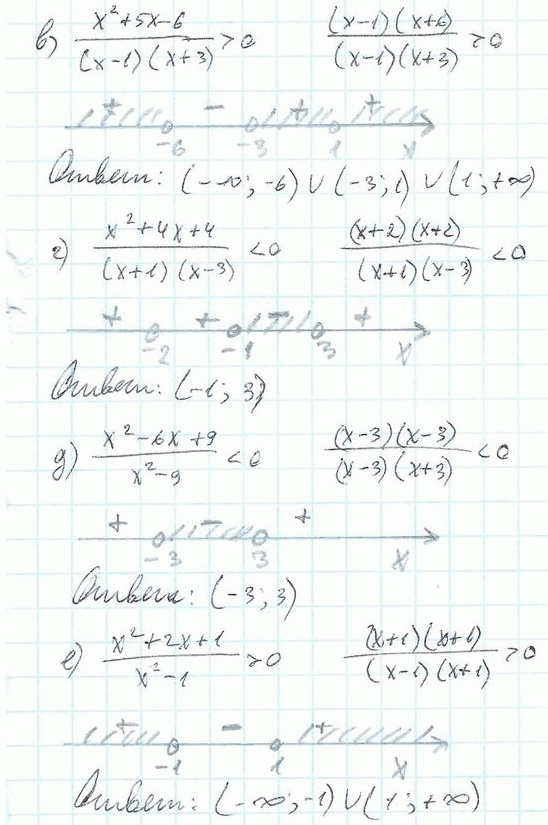 в) (x²+5x-6)/((x-1)(x+3)) >0 ((x-1)(x+6))/((x-1)(x+3)) >0
+ - + +
-6 -3 1 x
Ответ: (-∞; -6) ∪ (-3; 1) ∪ (1; +∞)
г) (x²+4x+4)/((x+1)(x-3)) <0 ((x+2)(x+2))/((x+1)(x-3)) <0
+ + - +
-2 -1 3 x
Ответ: (-1; 3)
д) (x²-6x+9)/(x²-9) <0 ((x-3)(x-3))/((x-3)(x+3)) <0
+ - +
-3 3 x
Ответ: (-3; 3)
е) (x²+2x+1)/(x²-1) >0 ((x+1)(x+1))/((x-1)(x+1)) >0
+ - +
-1 1 x
Ответ: (-∞; -1) ∪ (1; +∞)